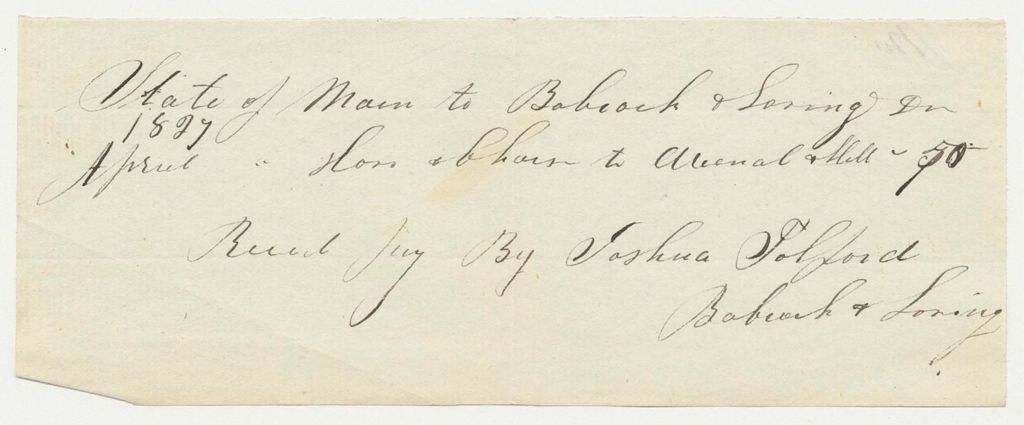 State of Main to Babcock & Loring Dr
1827
April " Hors & Chais to Arsenal & Hill - 50
Recd Pay By Joshua Tolford
Babcock & Loring